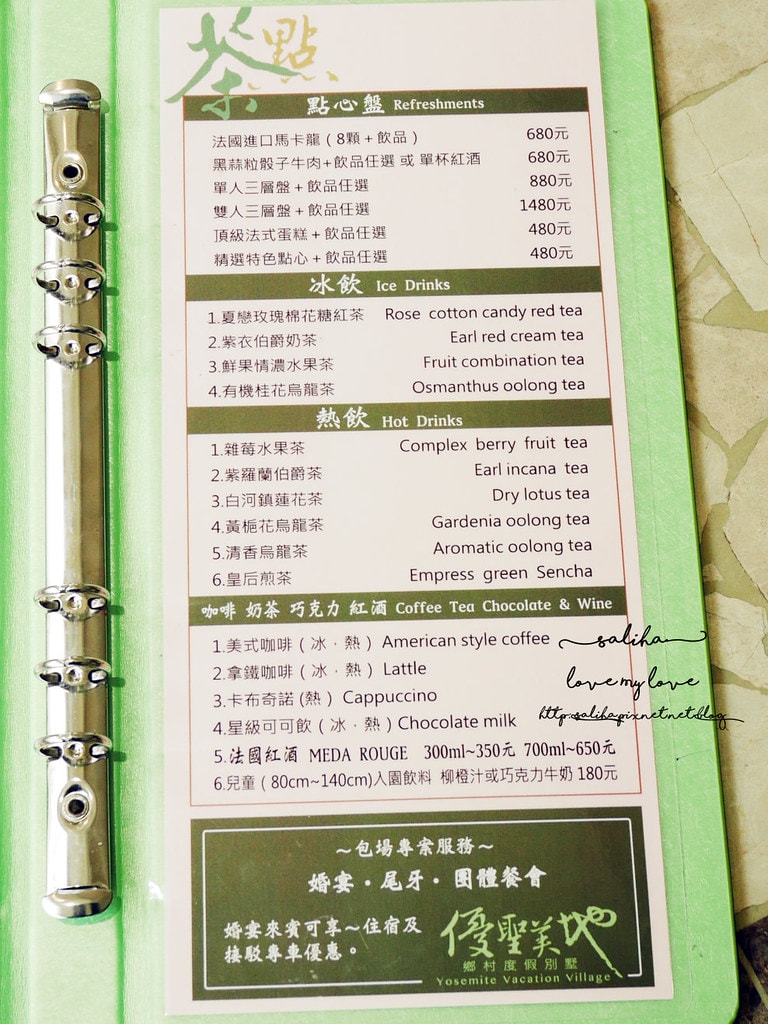 茶點
點心盤 Refreshments
法國進口馬卡龍（8顆＋飲品） 680元
黑蒜粒骰子牛肉+飲品任選 或 單杯紅酒 680元
單人三層盤＋飲品任選 880元
雙人三層盤＋飲品任選 1480元
頂級法式蛋糕＋飲品任選 480元
精選特色點心＋飲品任選 480元
冰飲 Ice Drinks
1.夏戀玫瑰棉花糖紅茶 Rose cotton candy red tea
2.紫衣伯爵奶茶 Earl red cream tea
3.鮮果情濃水果茶 Fruit combination tea
4.有機桂花烏龍茶 Osmanthus oolong tea
熱飲 Hot Drinks
1.雜莓水果茶 Complex berry fruit tea
2.紫羅蘭伯爵茶 Earl incana tea
3.白河鎮蓮花茶 Dry lotus tea
4.黃梔花烏龍茶 Gardenia oolong tea
5.清香烏龍茶 Aromatic oolong tea
6.皇后煎茶 Empress green Sencha
咖啡 奶茶 巧克力 紅酒 Coffee Tea Chocolate & Wine
1.美式咖啡（冰．熱）American style coffee
2.拿鐵咖啡（冰．熱）Lattle
3.卡布奇諾(熱） Cappuccino
4.星級可可飲（冰．熱）Chocolate milk
5.法國紅酒 MEDA ROUGE 300ml~350元 700ml~650元
6.兒童（80cm~140cm)入園飲料 柳橙汁或巧克力牛奶 180元
saliha
love my love
http:saliha.pixnet.net.blog
～包場專案服務～
婚宴・尾牙・團體餐會
婚宴來賓可享～住宿及
接駁專車優惠。
優聖美地
鄉村度假別墅
Yosemite Vacation Village